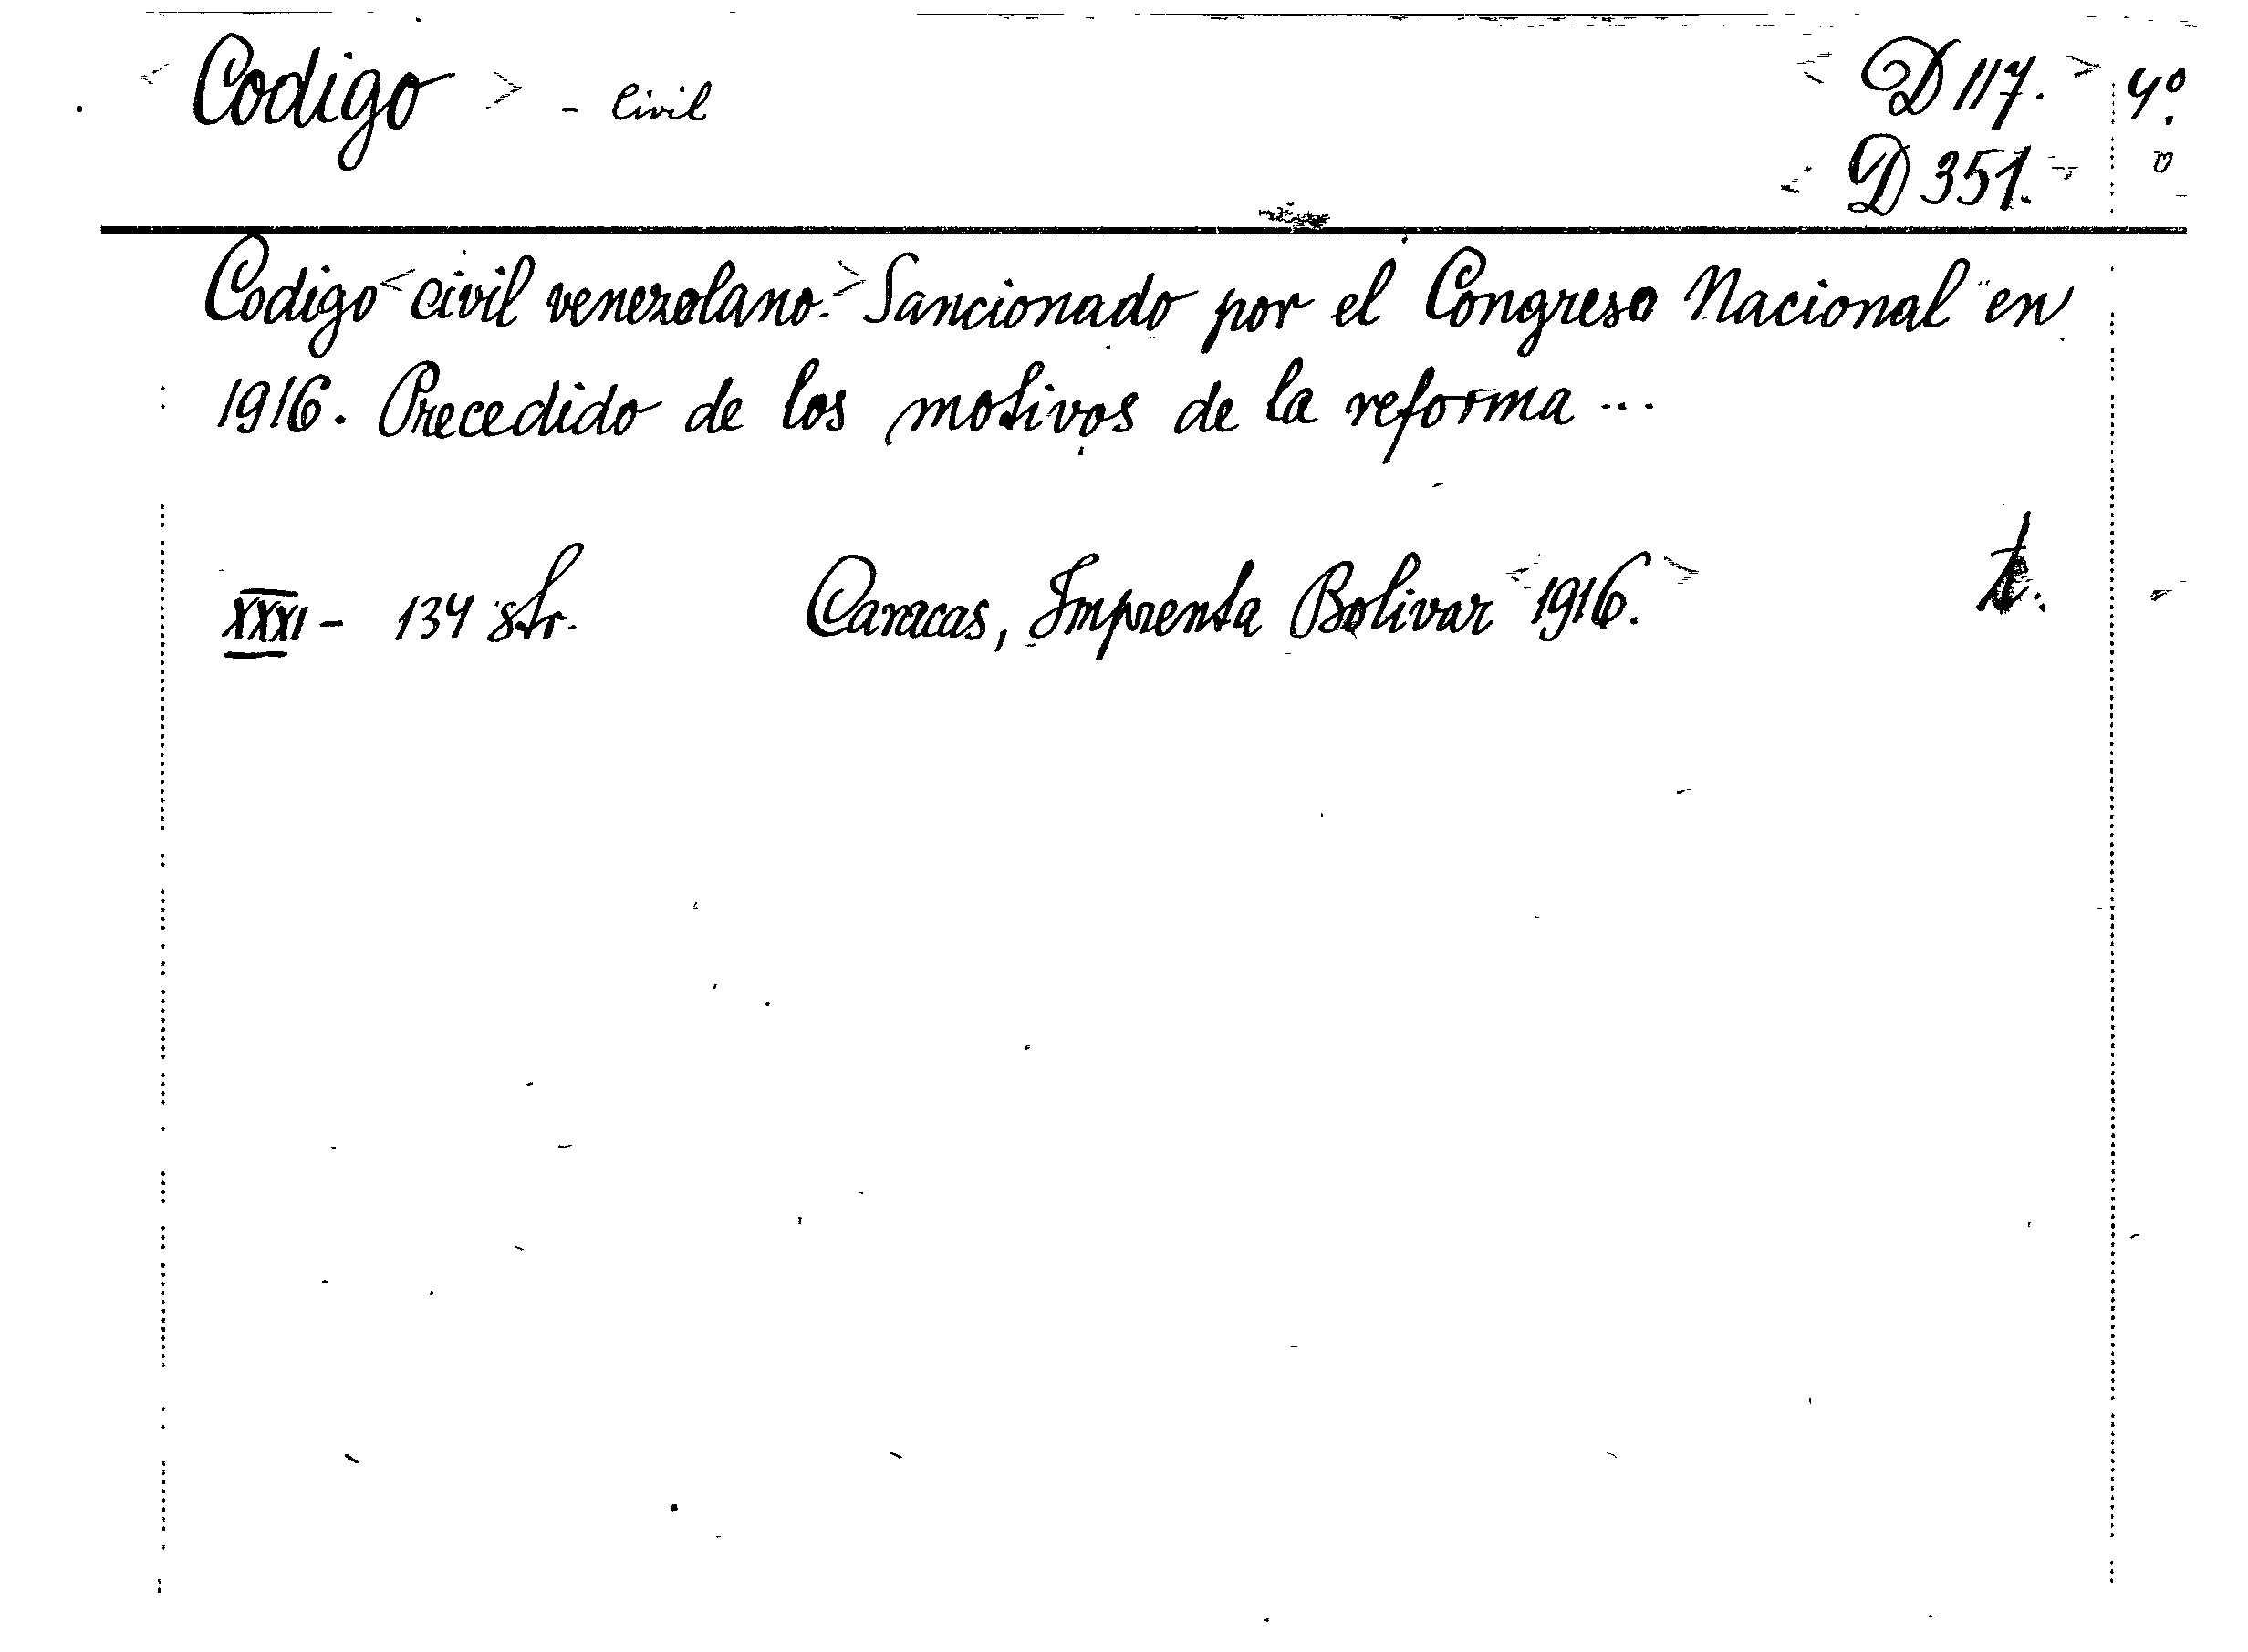 < Codigo > - Civil < D 117. > 4º.
< D 351. >
Codigo < civil venezolano. > Sancionado por el Congreso Nacional en
1916. Precedido de los motivos de la reforma ...
XXXI - 134 str. Caracas, Imprenta Bolivar < 1916. >